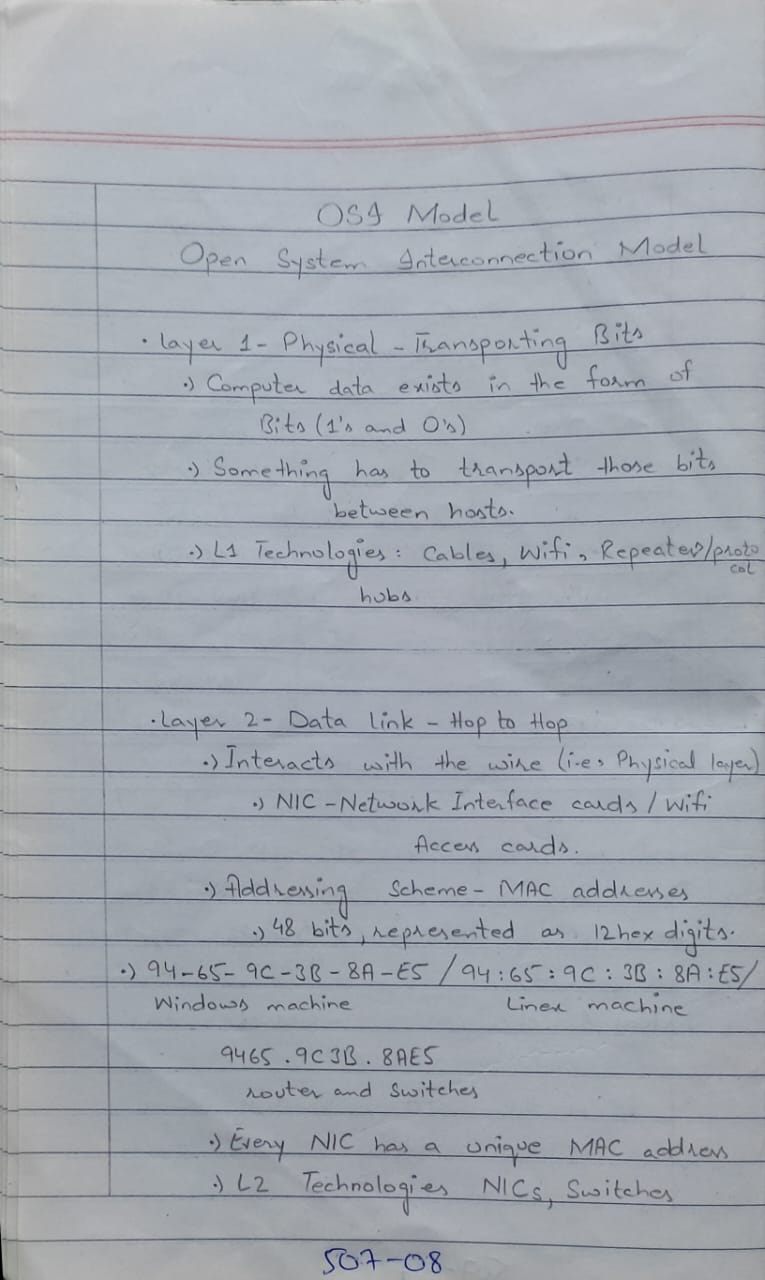 OSI Model
Open System Interconnection Model
• Layer 1 - Physical - Transporting Bits
•) Computer data exists in the form of
Bits (1's and 0's)
•) Something has to transport those bits
between hosts.
•) L1 Technologies: Cables, Wifi, Repeater/proto
col
hubs
• Layer 2 - Data link - Hop to Hop
•) Interacts with the wire (i.e, Physical layer)
•) NIC - Network Interface cards / Wifi
Access cards.
•) Addressing Scheme - MAC addresses
•) 48 bits, represented as 12 hex digits.
•) 94-65-9C-3B-8A-E5 / 94:65:9C:3B:8A:E5/
Windows machine Linex machine
9465.9C3B.8AE5
router and Switches
•) Every NIC has a unique MAC address
•) L2 Technologies NICs, Switches
507-08